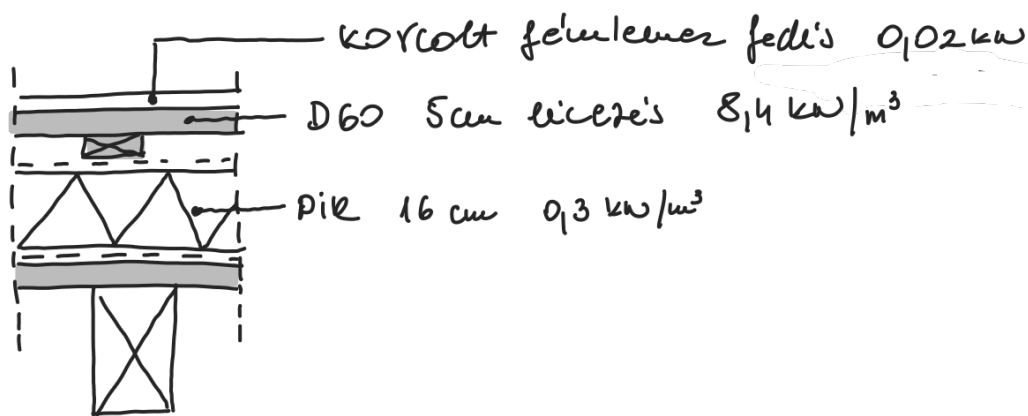 korcolt fémlemez fedés 0,02 kN
D60 5cm lécezés 8,4 kN/m³
PIR 16 cm 0,3 kN/m³